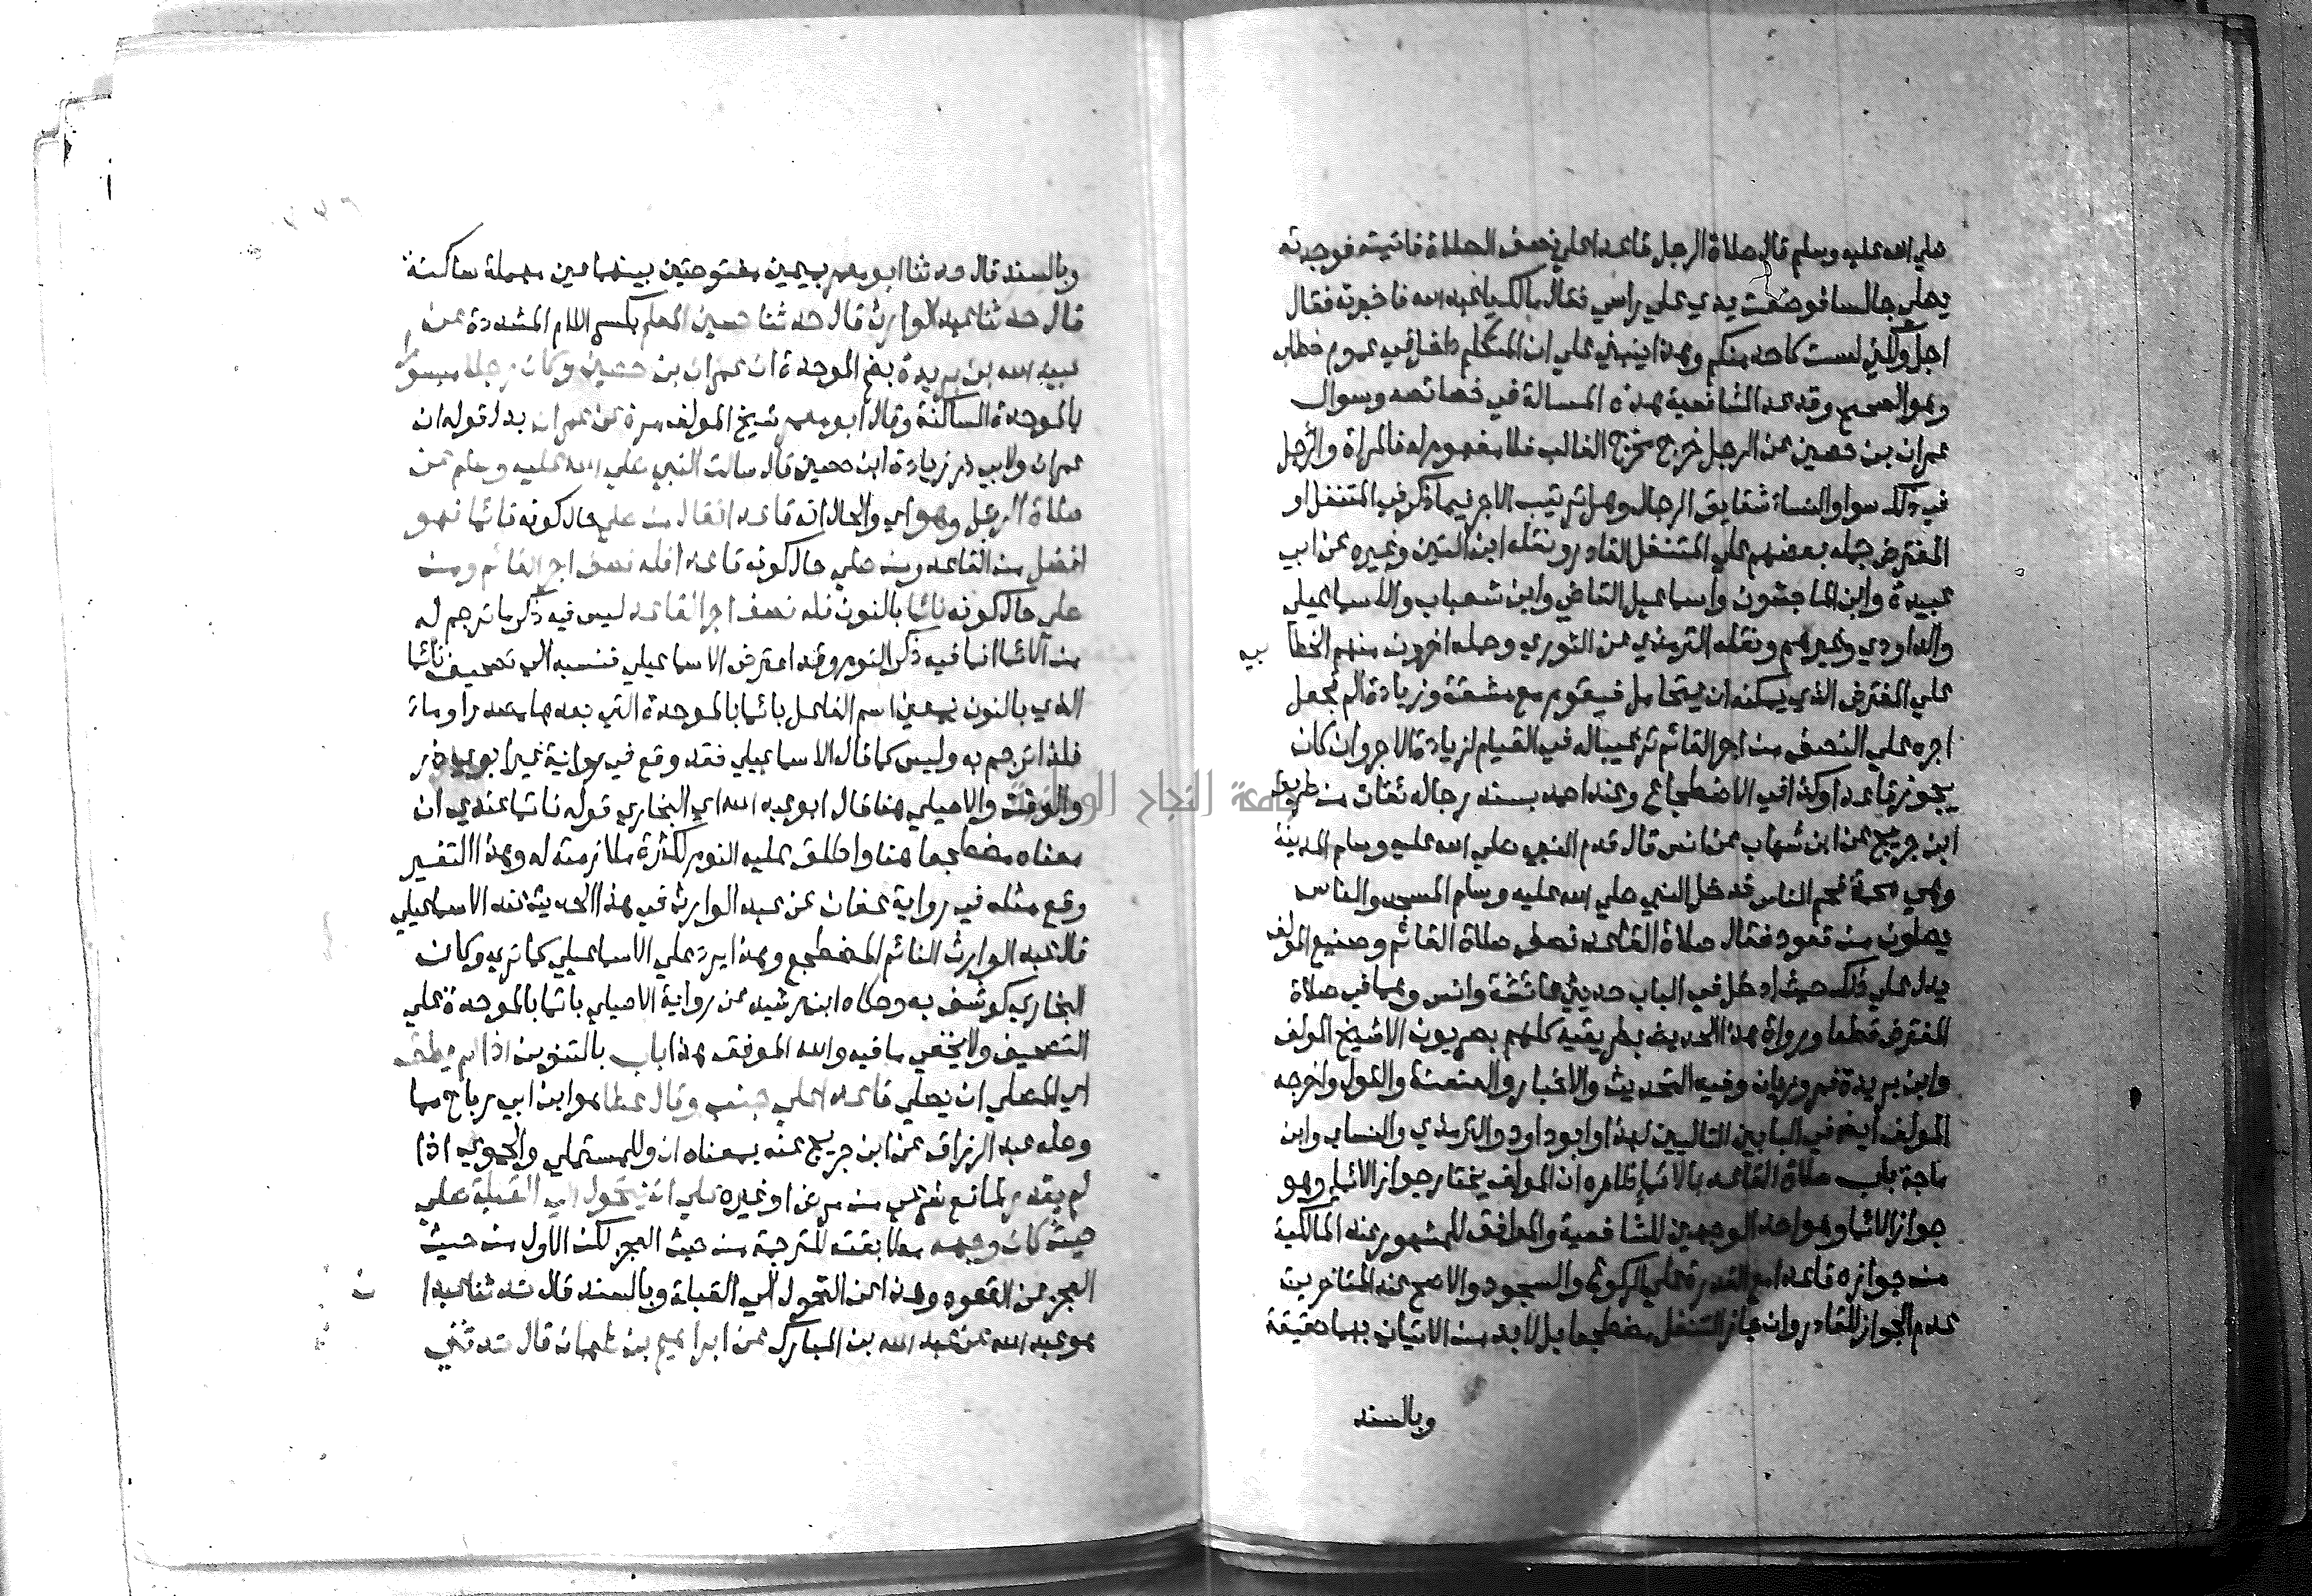 صلي الله عليه وسلم قال صلاة الرجل قاعدا علي نصف الصلاة فاتيته فوجدته
يصلي جالسا فوضعت يدي علي راسي فقال مالك يا عبد الله فاخبرته فقال
اجل ولكني لست كاحد منكم وهذا ينبني علي ان المتكلم داخل في عموم خطابه
وهو الصحيح وقد عد الشافعية هذه المسالة في خصائصه وسوال
عمران بن حصين عن الرجل خرج مخرج الغالب فلا مفهوم له فالمراة والرجل
في ذلك سوا والنساء شقايق الرجال وهل ترتيب الاجر فيما ذكر في المتنفل او
المفترض حمله بعضهم علي المتنفل القادر ونقله ابن التين وغيره عن ابي
عبيدة وابن الماجشون واسماعيل القاضي وابن شعبان والاسماعيلي
والداودي وغيرهم ونقله الترمذي عن الثوري وحمله اخرون منهم الخطا بي
علي المفترض الذي يمكنه ان يتحامل فيقوم مع مشقة وزيادة الم فجعل
اجره علي النصف من اجر القائم ترغيبا له في القيام لزيادة الاجر وان كان
يجوز قاعدا وكذا في الاضطجاع وعند احمد بسند رجاله ثقات من طريق
ابن جريج عن ابن شهاب عن انس قال قدم النبي صلي الله عليه وسلم المدينة
وهي محمة فحم الناس فدخل النبي صلي الله عليه وسلم المسجد والناس
يصلون من قعود فقال صلاة القاعد نصف صلاة القائم وصنيع المولف
يدل علي ذلك حيث ادخل في الباب حديثي عائشة وانس وهما في صلاة
المفترض قطعا ورواة هذا الحديث بطريقيه كلهم بصريون الا شيخ المولف
وابن بريدة فمروزيان وفيه التحديث والاخبار والعنعنة والقول واخرجه
المولف ايضا في البابين التاليين لهذا وابو داود والترمذي والنساي وابن
ماجة باب صلاة القاعد بالائيما ظاهره ان المولف يختار جواز الائيما وهو
جواز الائما وهو احد الوجهين للشافعية والموافق للمشهور عند المالكية
من جوازه قاعدا مع القدرة علي الركوع والسجود والاصح عند المتاخرين
عدم الجواز للقادر وان جاز التنفل مضطجعا بل لابد من الاتيان بهما حقيقة
وبالسند
وبالسند قال حدثنا ابو معمر بميمين مفتوحتين بينهما عين مهملة ساكنة
قال حدثنا عبد الوارث قال حدثنا حسين المعلم بكسر اللام المشددة عن
عبيد الله بن بريدة بضم الموحدة ان عمران بن حصين وكان رجلا مبسورا
بالموحدة الساكنة وقال ابو معمر شيخ المولف مرة عن عمران بدل قوله ان
عمران ولابي ذر زيادة ابن حصين قال سالت النبي صلي الله عليه وسلم عن
صلاة الرجل وهو اي والحال انه قاعد فقال من صلي حال كونه قائما فهو
افضل من القاعد ومن صلي حال كونه قاعدا فله نصف اجر القائم ومن
صلي حال كونه نائما بالنون فله نصف اجر القاعد ليس فيه ذكر ما ترجم له
من الائما انما فيه ذكر النوم وقد اعترض الاسماعيلي فنسبه الي تصحيف نائما
الذي بالنون يعني اسم الفاعل بائما بالموحدة التي بعدها مصدر اوماء
فلذا ترجم به وليس كما قال الاسماعيلي فقد وقع في رواية غير ابوي ذر
والوقت والاصيلي هنا قال ابو عبد الله اي البخاري قوله نائما عندي ان
معناه مضطجعا هنا واطلق عليه النوم لكثرة ملازمته له وهذا التفسير
وقع مثله في رواية عفان عن عبد الوارث في هذا الحديث عند الاسماعيلي
قال عبد الوارث النائم المضطجع وهذا يرد علي الاسماعيلي كما تري وكان
البخاري كوشف به وحكاه ابن رشيد عن رواية الاصيلي بائما بالموحدة علي
التصحيف ولا يخفي ما فيه والله الموفق هذا باب بالتنوين اذا لم يطق
اي المصلي ان يصلي قاعدا صلي علي جنب وقال عطا هو ابن ابي رباح مما
وصله عبد الرزاق عن ابن جريج عنه بمعناه ان وللمستملي والحموي اذا
لم يقدر لمانع شرعي من مرض او غيره علي ان يتحول الي القبلة صلي
حيث كان وجهه مطابقته للترجمة من حيث العجز لكن الاول من حيث
العجز عن القعود وهذا عن التحول الي القبلة وبالسند قال حدثنا عبدان
هو عبد الله عن عبد الله بن المبارك عن ابراهيم بن طهمان قال حدثني